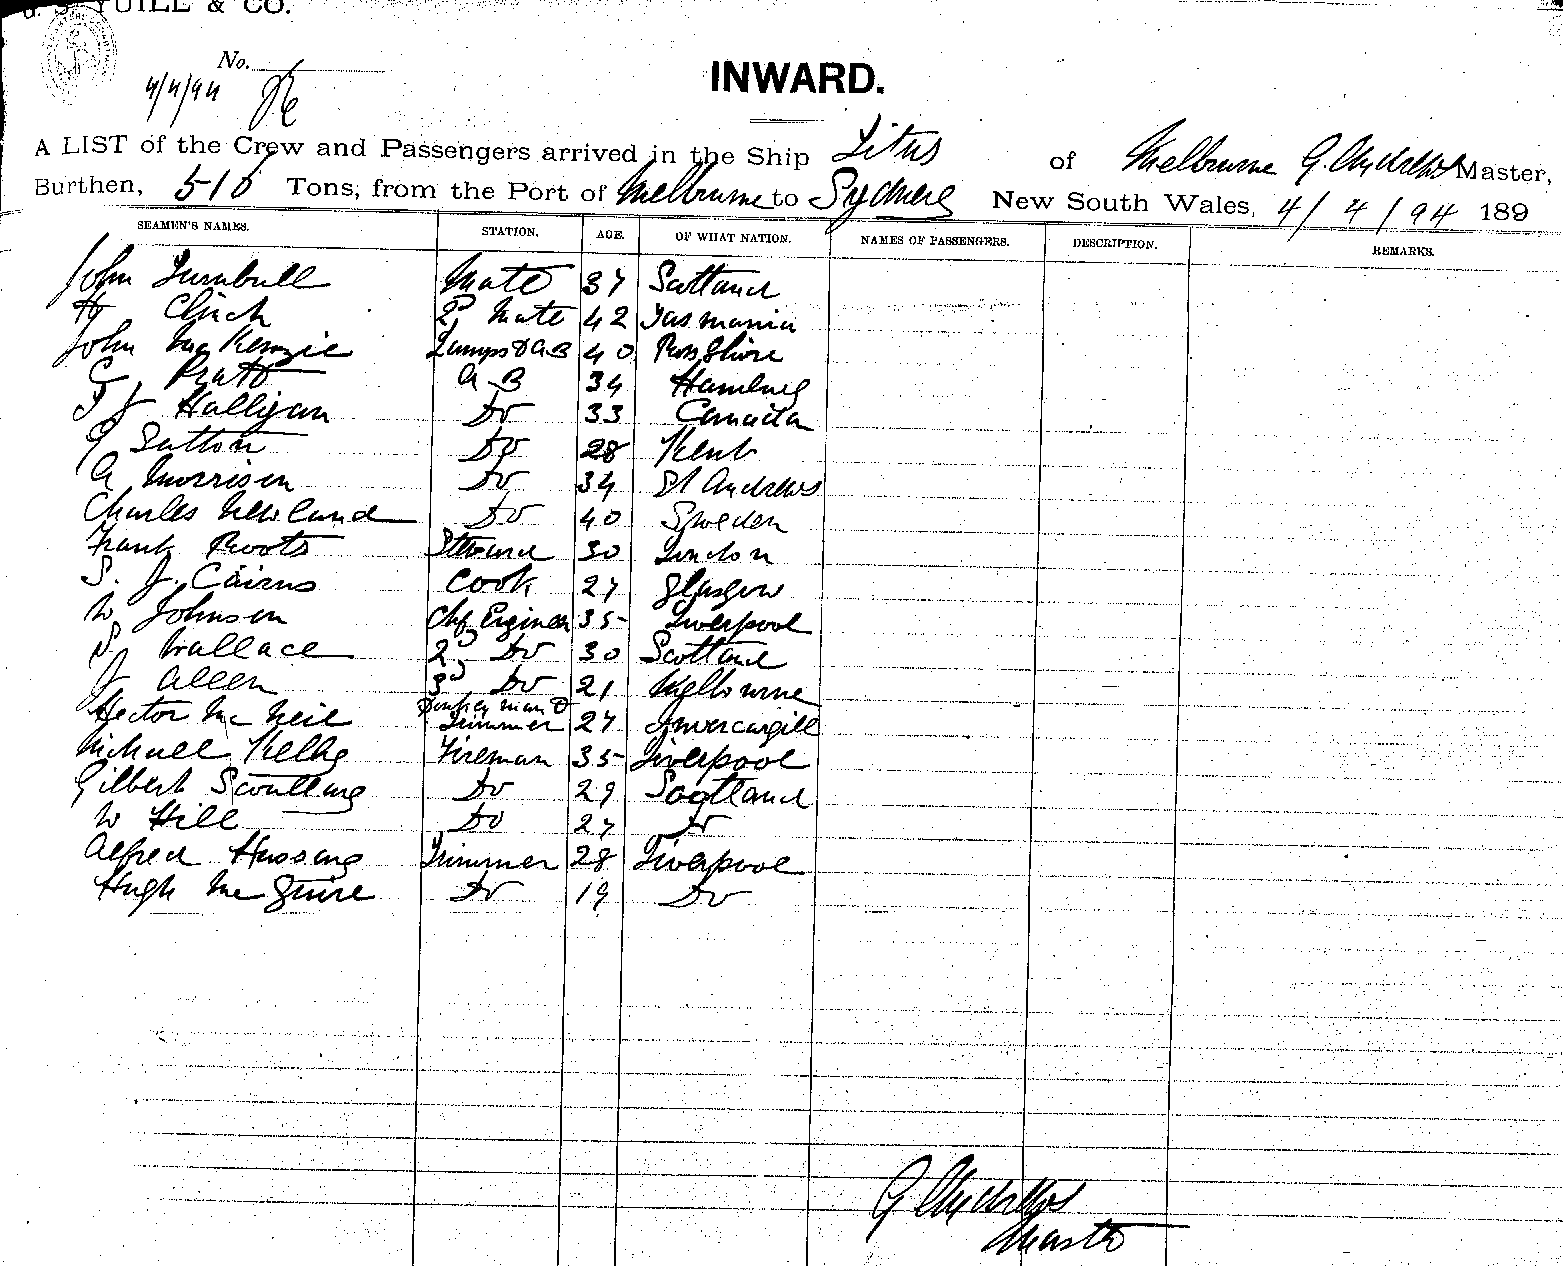 YUILL & CO.
No.
4/4/94
INWARD.
A LIST of the Crew and Passengers arrived in the Ship Titus of Melbourne G. Andrews Master,
Burthen, 516 Tons, from the Port of Melbourne to Sydney New South Wales, 4/4/94 189
SEAMEN'S NAMES. STATION. AGE. OF WHAT NATION. NAMES OF PASSENGERS. DESCRIPTION. REMARKS.
John Turnbull Mate 37 Scotland
Hy Clinch 2d Mate 42 Tasmania
John McKenzie Lamps & AB 40 Ross Shire
C Pratt A B 34 Hamburg
F J Halligan Do 33 Canada
G Sutton Do 28 Kent
A Morrison Do 34 St Andrews
Charles Newland Do 40 Sweden
Frank Roots Steward 30 London
S. J. Cairns Cook 27 Glasgow
W Johnson Chf Engineer 35 Liverpool
S Wallace 2d Do 30 Scotland
J Allen 3d Do 21 Melbourne
Hector McNeil Donkey man & Trimmer 27 Invercargill
Michael Kelly Fireman 35 Liverpool
Gilbert Do 29 Scotland
W Hill Do 27 Do
Alfred Trimmer 28 Liverpool
Hugh McGuire Do 19 Do
G Andrews
Master